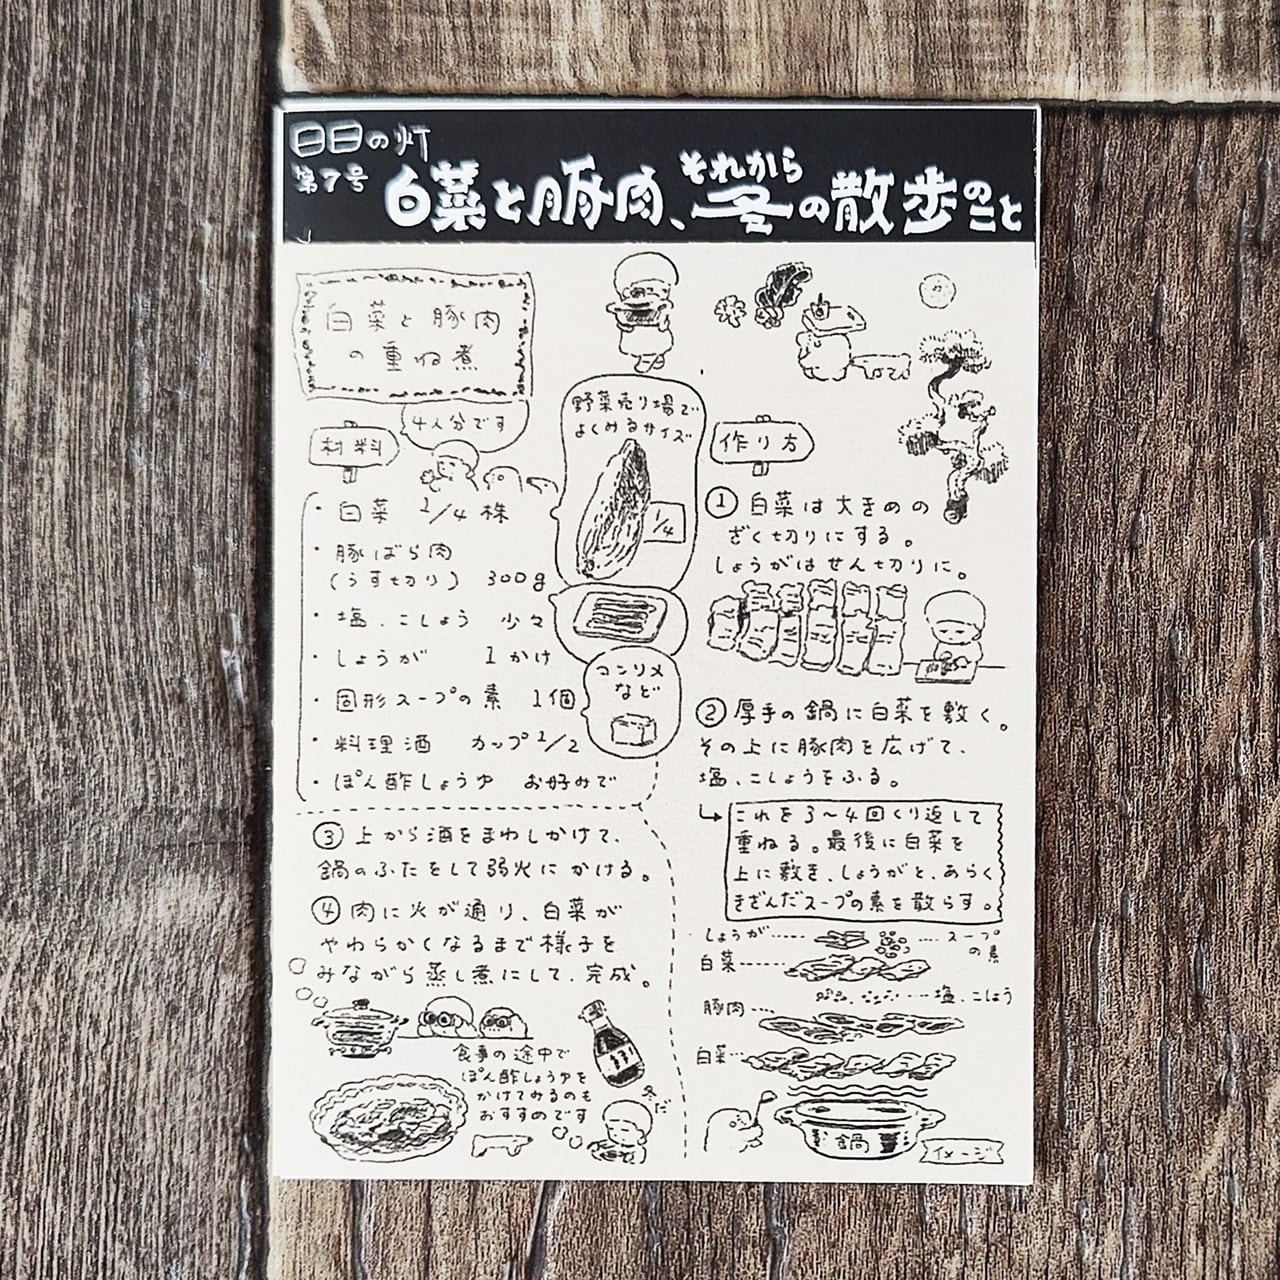 日日の灯
第7号
白菜と豚肉、それから冬の散歩のこと
白菜と豚肉
の重ね煮
材料
4人分です
・白菜 1/4株
・豚ばら肉
(うす切り) 300g
・塩、こしょう 少々
・しょうが 1かけ
・固形スープの素 1個
・料理酒 カップ1/2
・ぽん酢しょうゆ お好みで
野菜売り場で
よくみるサイズ
1/4
コンソメ
など
作り方
① 白菜は大きめの
ざく切りにする。
しょうがはせん切りに。
② 厚手の鍋に白菜を敷く。
その上に豚肉を広げて、
塩、こしょうをふる。
これを3〜4回くり返して
重ねる。最後に白菜を
上に敷き、しょうがと、あらく
きざんだスープの素を散らす。
しょうが
スープ
の素
白菜
塩、こしょう
豚肉
白菜
鍋
イメージ
③ 上から酒をまわしかけて、
鍋のふたをして弱火にかける。
④ 肉に火が通り、白菜が
やわらかくなるまで様子を
みながら蒸し煮にして、完成。
食事の途中で
ぽん酢しょうゆを
かけてみるのも
おすすめです
冬だ